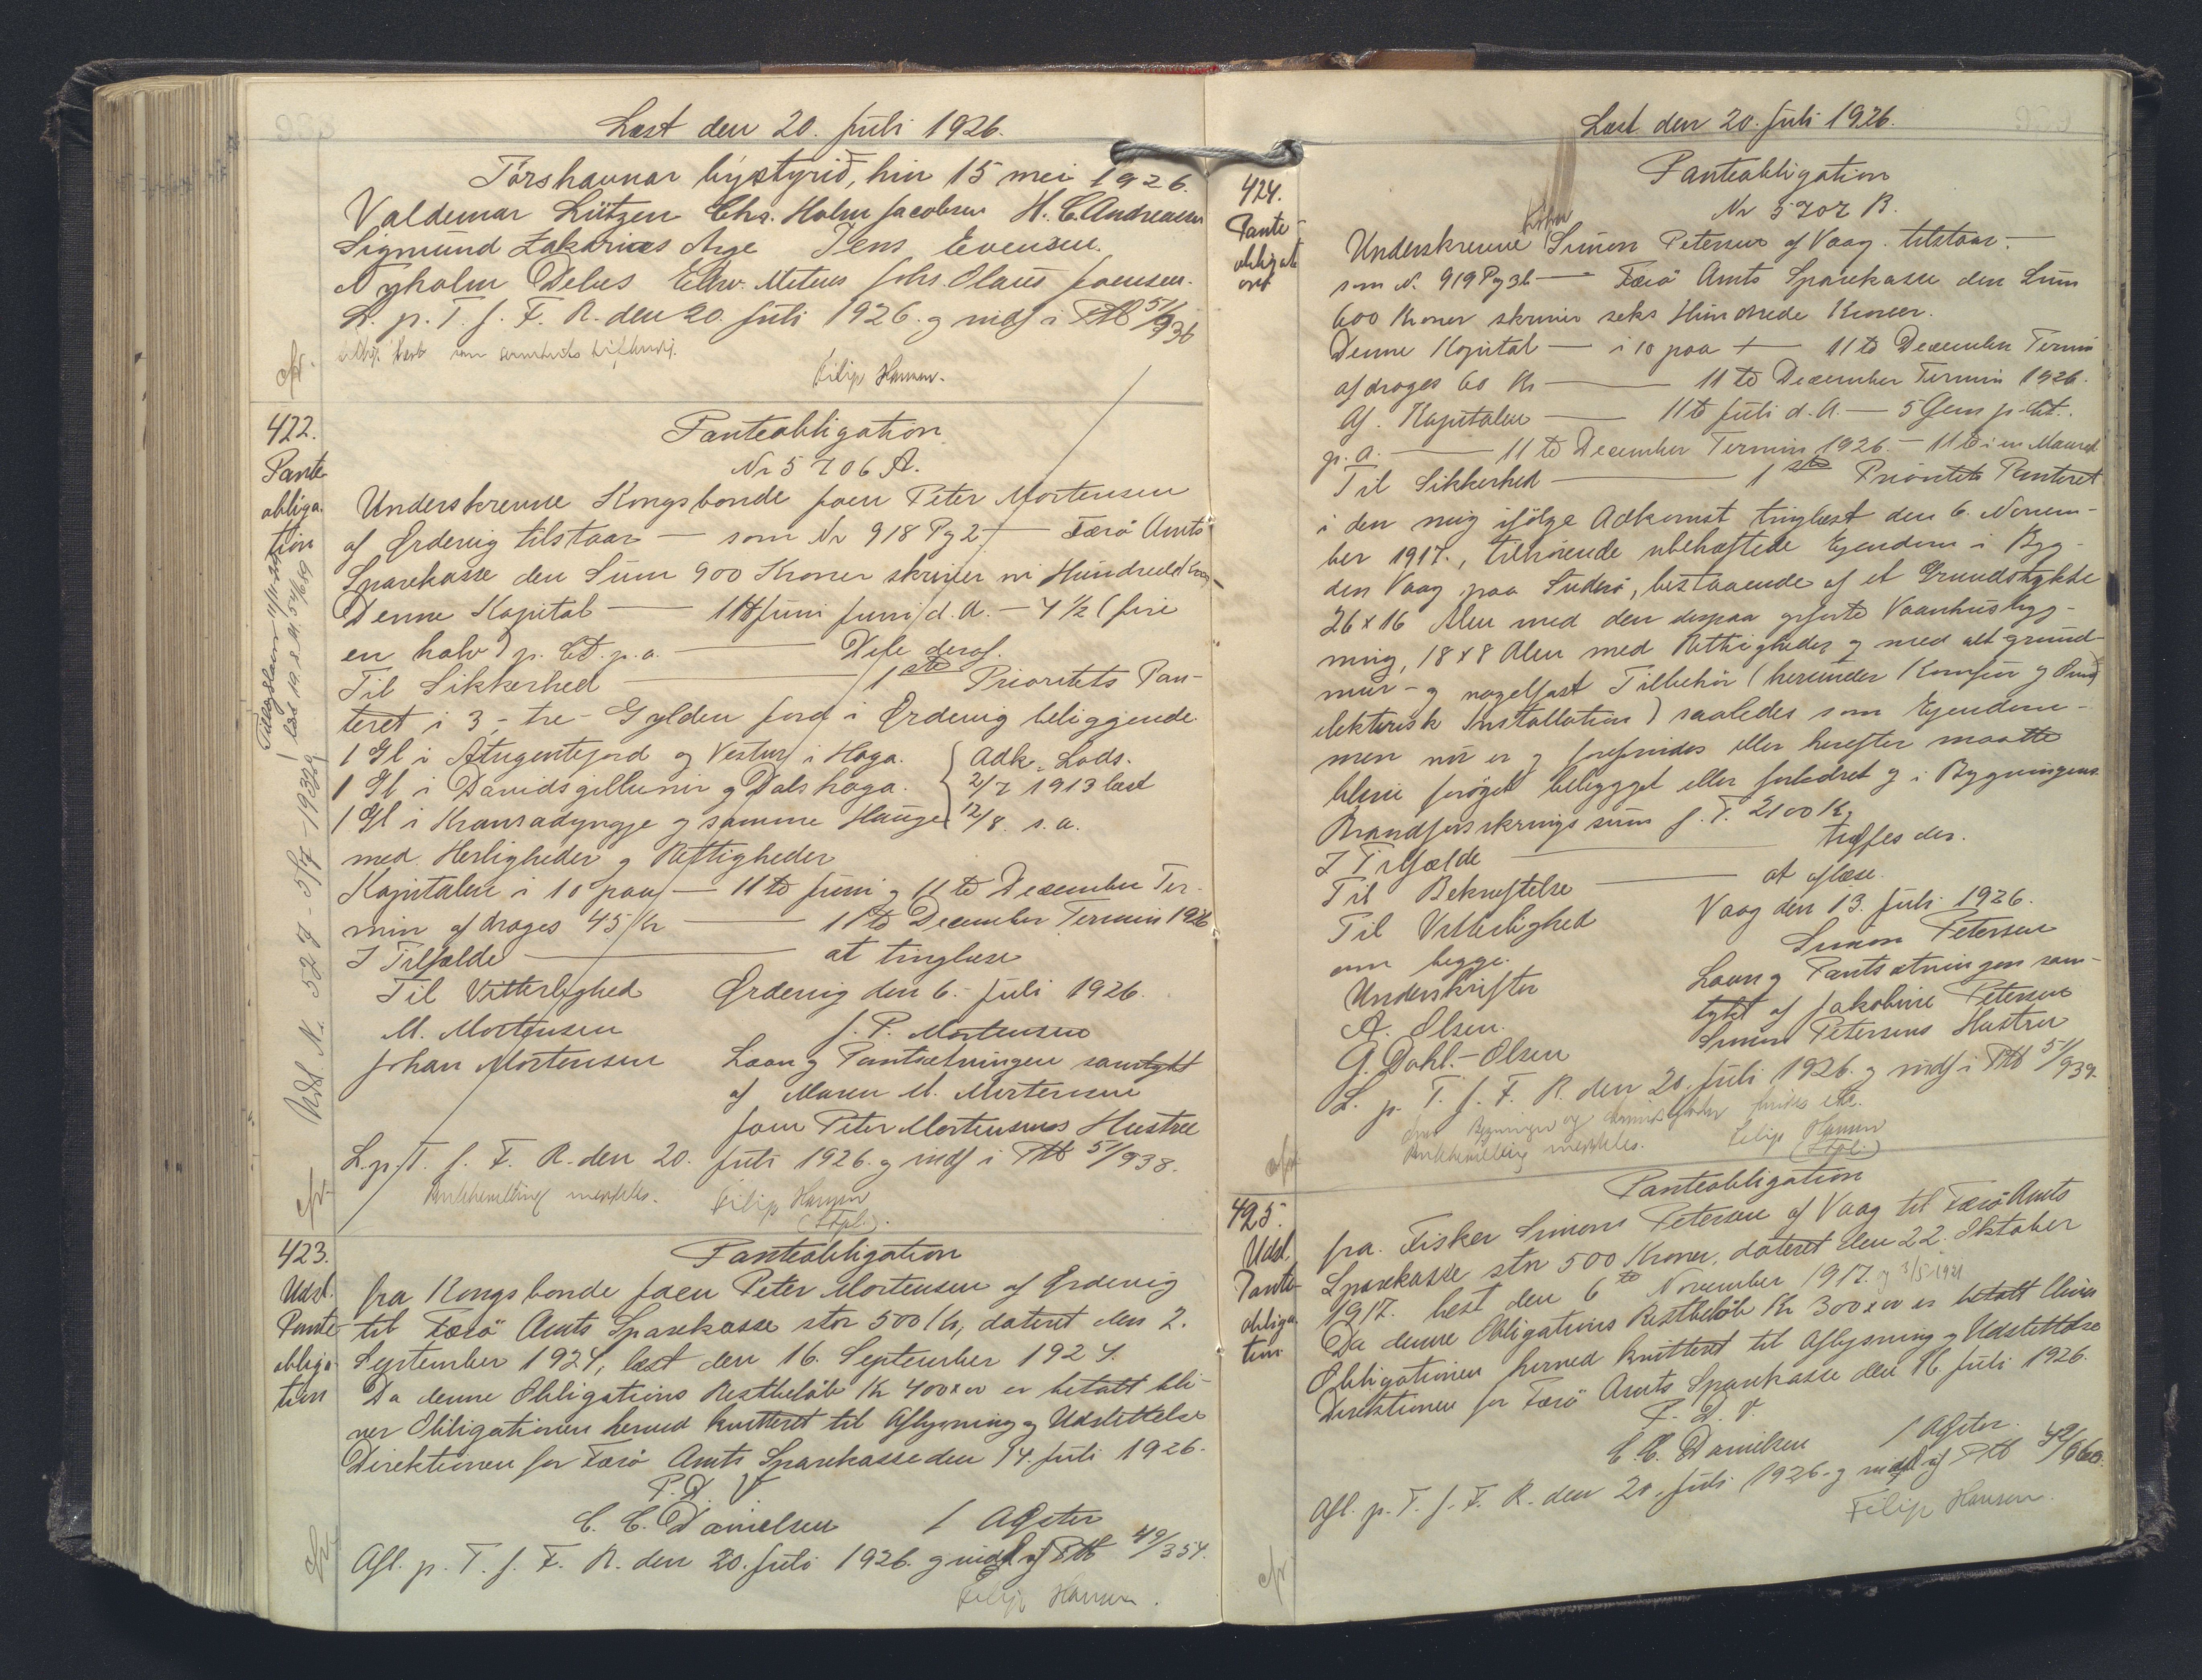 Læst den 20. Juli 1926.
Tórshavnar býstýrið, hin 15 mei 1926.
Valdemar Lützen Chr. Holm Jacobsen H. C. Andreasen
Sigmund Zakarias Arge Jens Evensen.
Nyholm Debes Edw. Mitens Johs. Olaus Joensen.
L. p. T. f. F. R. den 20. Juli 1926. og indf i Ptb 51/936
Filip Hansen.
422.
Pante
obliga.
tion
Panteobligation
Nr 5706 A.
Underskrevne Kongsbonde Joen Peter Mortensen
af Ørdevig tilstaar — som Nr 918 Pg 2 — Færø Amts
Sparekasse den Sum 900 Kroner skriver ni Hundrede Kroner
Denne Kapital — 11te Juni Juni d. A. — 4 1/2 (fire
en halv) p. Ct. p. a. — Dele deraf.
Til Sikkerhed — 1ste Prioritets Pan-
teret i 3 - tre - Gylden Jord i Ørdevig beliggende
1 Gl i Atugentejord og Vestur i Haga. Adk. Lods.
1 Gl i Davidsgillunir og Dalshaga. 2/7 1913 læst
1 Gl i Kransadyngje og samme Hauge 12/8 s. a.
med Herligheder og Rettigheder
Kapitalen i 10 paa — 11te Juni og 11te December Ter-
min afdrages 45 Kr — 11te December Termin 1926
I Tilfælde — at tinglæse
Til Vitterlighed Ørdevig den 6. Juli 1926.
M. Mortensen J. P. Mortensen
Johan Mortensen Laan og Pantsætningen samtykt
af Maren M. Mortensen
Joen Peter Mortensens Hustru
L. p. T. f. F. R. den 20. Juli 1926. og indf i Ptb 51/938.
Ankehenvisning meddeles. Filip Hansen
(Stpl.).
423.
Udsl.
Pante
obliga-
tion
Panteobligation
fra Kongsbonde Joen Peter Mortensen af Ørdevig
til Færø Amts Sparekasse stor 500 Kr, dateret den 2.
September 1924, læst den 16. September 1924.
Da denne Obligations Restbeløb Kr 400 x 00 er betalt bli-
ver Obligationen herved kvitteret til Aflysning og Udslettelse
Direktionen for Færø Amts Sparekasse den 14. Juli 1926.
P. D. V.
C. C. Danielsen / A Ziska
Afl. p. T. f. F. R. den 20. Juli 1926. og indf af Ptb 49/354.
Filip Hansen.
Læst den 20. Juli 1926.
424.
Pante-
obligati
on
Panteobligation
Nr 5707 B.
Fisker
Underskrevne Simon Petersen af Vaag tilstaar —
som Nr. 919 Pg 36 — Færø Amts Sparekasse den Sum
600 Kroner skriver seks Hundrede Kroner.
Denne Kapital — i 10 paa — 11te December Termin
afdrages 60 Kr — 11te December Termin 1926.
Af Kapitalen — 11te Juli d. A. — 5 Fem p. Ct.
p. a. — 11te December Termin 1926. — 11te i en Maaned
Til Sikkerhed — 1ste Prioritets Panteret
i den mig ifølge Adkomst tinglæst den 6. Novem-
ber 1917., tilhørende ubehæftede Ejendom i Byg-
den Vaag paa Suderø, bestaaende af et Grundstykke
26 x 16 Alen med den derpaa opførte Vaanhusbyg-
ning, 18 x 8 Alen med Rettigheder og med alt grund-
mur- og nagelfast Tilbehør (herunder Komfur og
elektrisk Installation) saaledes som Ejendom-
men nu er og forefindes eller herefter maatte
blive forøget bebygget eller forbedret og i Bygningens
Brandforsikringssum f. T. 2100 Kr.
I Tilfælde — træffes der.
Til Bekræftelse — at aflæse.
Til Vitterlighed Vaag den 13. Juli 1926.
om begge. Simon Petersen
Underskrifter Laan og Pantsætningen sam-
A. Olsen. tykt af Jakobine Petersen
G. Dahl-Olsen Simon Petersens Hustru
L. p. T. f. F. R. den 20. Juli 1926. og indf i Ptb 51/939.
Ankehenvisning meddeles. Filip Hansen
(Stpl.)
425.
Udsl.
Pante-
obliga
tion
Panteobligation
fra Fisker Simon Petersen af Vaag til Færø Amts
Sparekasse stor 500 Kroner, dateret den 22. Oktober
1917. læst den 6te November 1917. og 3/5 1921
Da denne Obligations Restbeløb Kr 300 x 00 er betalt bliver
Obligationen herved kvitteret til Aflysning og Udslettelse
Direktionen for Færø Amts Sparekasse den 16. Juli 1926.
P. D. V.
C. C. Danielsen / A Ziska.
Afl. p. T. f. F. R. den 20. Juli 1926. og indf af Ptb
Filip Hansen.